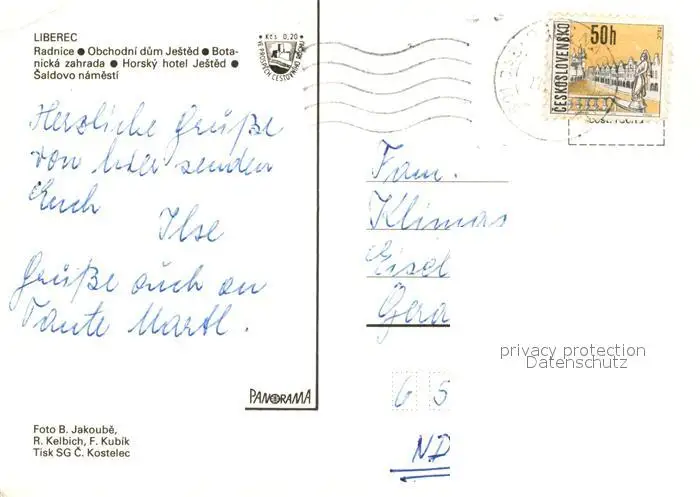 LIBEREC
Radnice ● Obchodní dům Ještěd ● Bota-
nická zahrada ● Horský hotel Ještěd ●
Šaldovo náměstí
Kčs 0,20
VE PROSPĚCH CESTOVNÍHO RUCHU
ČESKOSLOVENSKO
50h
TELČ
Herzliche Grüße
von hier senden
Euch
Ilse
Grüße auch an
Tante Martl.
Fam.
Klimas
Eisel
Gera
privacy protection
Datenschutz
PANORAMA
6 5
ND
Foto B. Jakoubě,
R. Kelbich, F. Kubík
Tisk SG Č. Kostelec